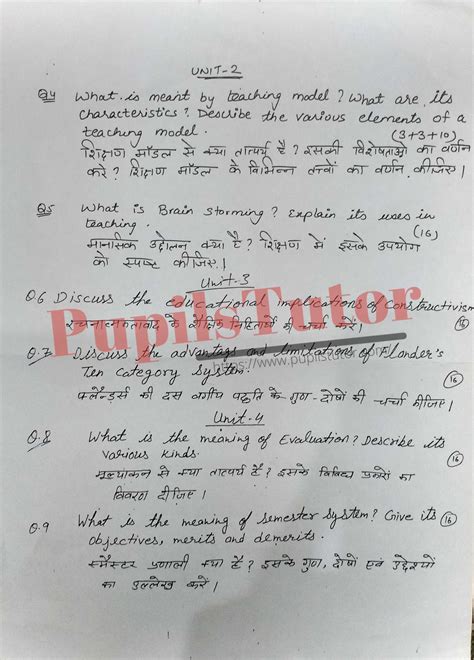 UNIT-2
Q4 What is meant by teaching model? What are its
characteristics? Describe the various elements of a
teaching model. (3+3+10)
शिक्षण मॉडल से क्या तात्पर्य है? इसकी विशेषताओं का वर्णन
करे? शिक्षण मॉडल के विभिन्न तत्त्वों का वर्णन कीजिए।
Q5 What is Brain storming? Explain its uses in
teaching. (16)
मानसिक उद्वेलन क्या है? शिक्षण में इसके उपयोग
को स्पष्ट कीजिए।
Unit-3
Q.6 Discuss the educational implications of Constructivism
रचनात्मकतावाद के शैक्षिक निहितार्थों की चर्चा करें। (16)
PupilsTutor
Q.7 Discuss the advantags and limitations of Flander's
https://www.pupilstutor.com
Ten category System. (16)
फ्लैन्डर्स की दस वर्गीय पद्धति के गुण-दोषों की चर्चा कीजिए।
Unit-4
Q.8 What is the meaning of Evaluation? Describe its (16)
various kinds.
मूल्यांकन से क्या तात्पर्य है? इसके विविध प्रकारों का
विवरण दीजिए।
Q.9 What is the meaning of semester system? Give its (16)
objectives, merits and demerits.
स्मैस्टर प्रणाली क्या है? इसके गुण, दोषों एवं उद्देश्यों
का उल्लेख करें।